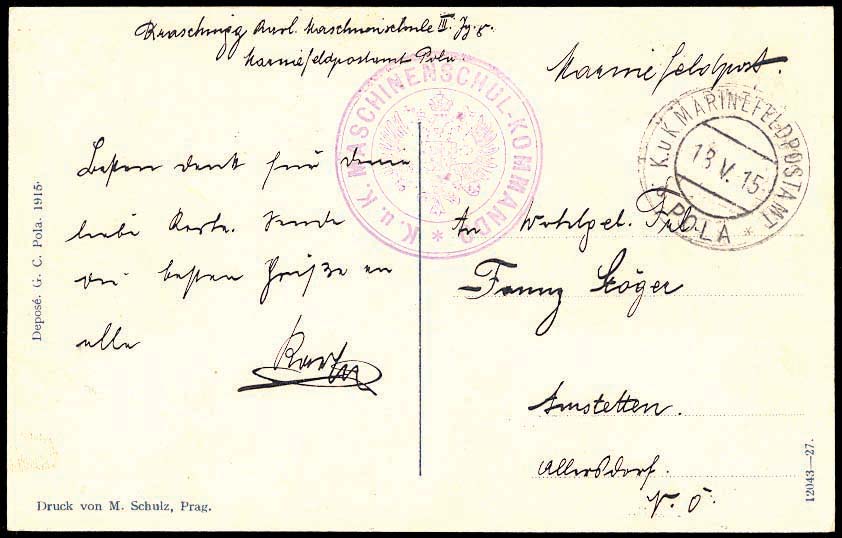 Karl. Maschinenschule III. Jg. 
Marinefeldpostamt Pola.
Marinefeldpost.
K. u. K. MASCHINENSCHUL-KOMMANDO *
K.u.K. MARINEFELDPOSTAMT
13 V. 15
POLA *
Besten dank für deine
liebe Karte. Sende
dir besten Grüße an
alle
Karl
An Wohlgeb. Frl.
Fanny Stöger
Amstetten.
Allersdorf.
N. Ö.
Deposé. G. C. Pola. 1915.
Druck von M. Schulz, Prag.
12043—27.